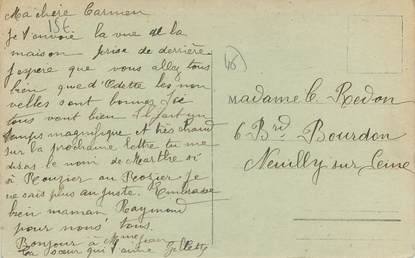 Ma chère Carmen
15€
Je t'envoie la vue de la
maison prise de derrière
j'espère que vous allez tous
bien que d'Odette les nou
velles sont bonnes. Ici
tous vont bien Il fait un
temps magnifique et très chaud
sur la prochaine lettre tu me
diras le nom de Marthe si
si Rouzier ou Rozier je
ne sais plus au juste. Embrasse
bien maman, Raymond
pour nous tous.
Bonjour à Mme Jean
Ta sœur qui t'aime
45
Madame C. Redon
6 Brd Bourdon
Neuilly sur Seine